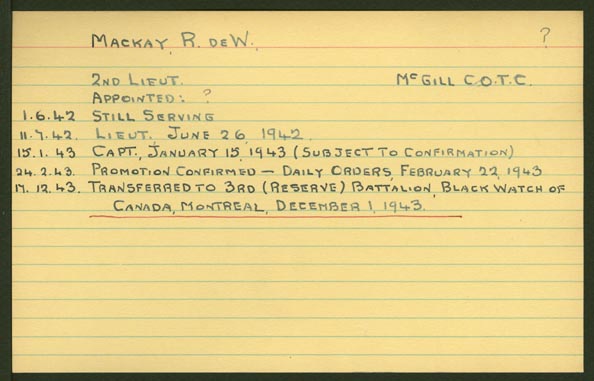 MACKAY, R. DE W. ?
2ND LIEUT. McGILL C.O.T.C.
APPOINTED: ?
1.6.42 STILL SERVING
11.7.42. LIEUT. JUNE 26, 1942.
15.1.43 CAPT., JANUARY 15, 1943 (SUBJECT TO CONFIRMATION)
24.2.43. PROMOTION CONFIRMED — DAILY ORDERS, FEBRUARY 22, 1943
17.12.43. TRANSFERRED TO 3RD (RESERVE) BATTALION, BLACK WATCH OF
CANADA, MONTREAL, DECEMBER 1, 1943.